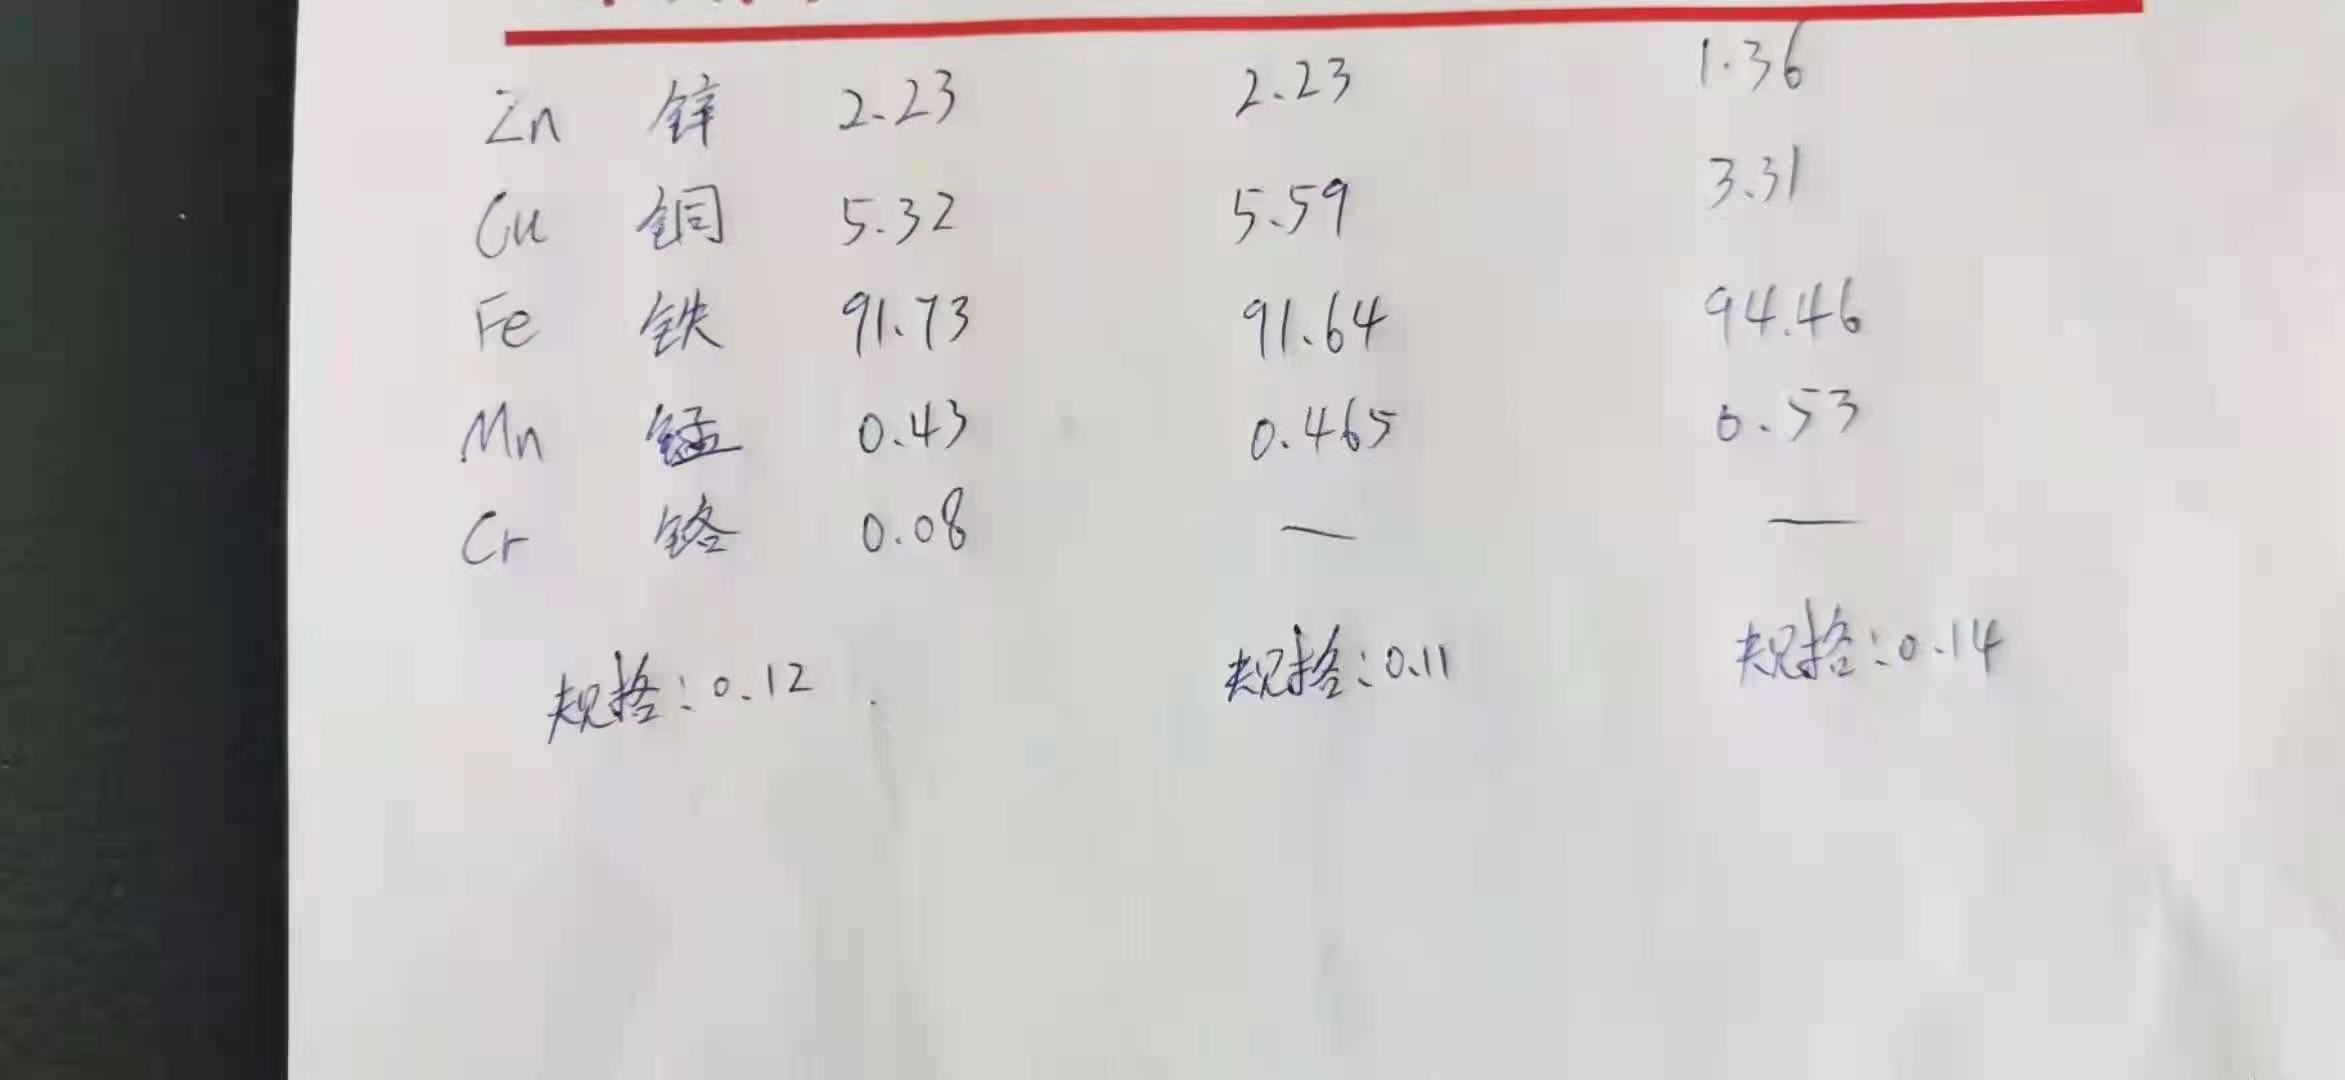 Zn 锌 2.23 2.23 1.36
Cu 铜 5.32 5.59 3.31
Fe 铁 91.73 91.64 94.46
Mn 锰 0.43 0.465 0.53
Cr 铬 0.08 — —
规格:0.12 规格:0.11 规格:0.14